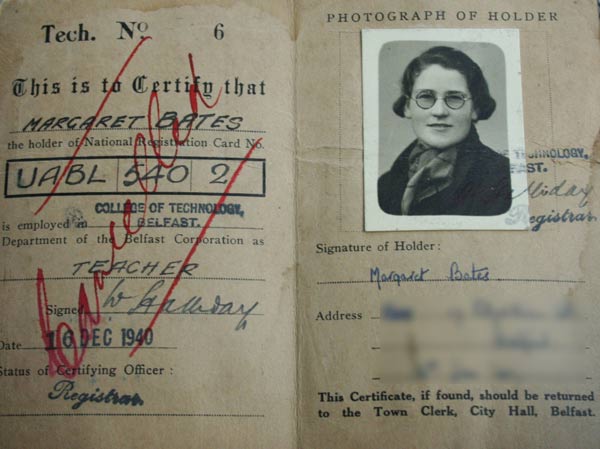 Tech. No. 6
This is to Certify that
MARGARET BATES
the holder of National Registration Card No.
UABL 540 2
COLLEGE OF TECHNOLOGY,
is employed in BELFAST.
Department of the Belfast Corporation as
TEACHER
Signed W Halliday
Date 16 DEC 1940
Status of Certifying Officer :
Registrar.
Cancelled
PHOTOGRAPH OF HOLDER
OF TECHNOLOGY,
FAST.
Registrar
Signature of Holder :
Margaret Bates
Address
This Certificate, if found, should be returned
to the Town Clerk, City Hall, Belfast.